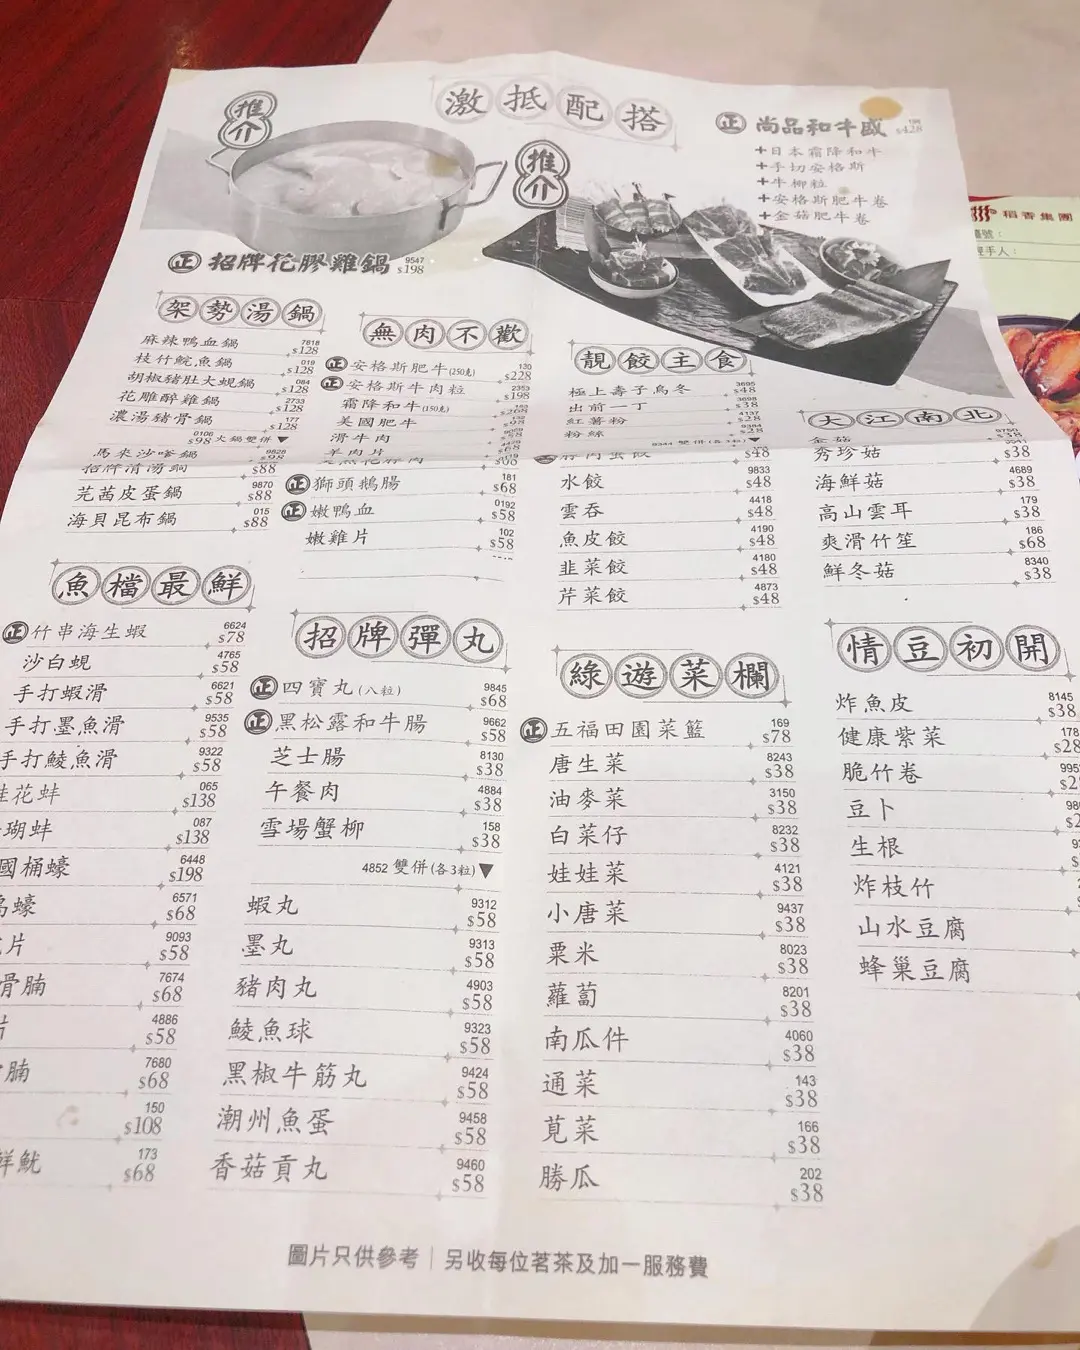 激抵配搭
推介
推介
正 招牌花膠雞鍋 9547 $198
正 尚品和牛盛 198 $428
+日本霜降和牛
+手切安格斯
+牛柳粒
+安格斯肥牛卷
+金菇肥牛卷
稻香集團
經手人：
架勢湯鍋
麻辣鴨血鍋 7818 $128
枝竹鯇魚鍋 019 $128
胡椒豬肚大蜆鍋 084 $128
花雕醉雞鍋 2733 $128
濃湯豬骨鍋 177 $128
0106 火鍋雙併▼ $98
馬來沙嗲鍋 9828 $98
招牌清湯鍋 $88
芫茜皮蛋鍋 9870 $88
海貝昆布鍋 015 $88
無肉不歡
正 安格斯肥牛(250克) 130 $228
正 安格斯牛肉粒 2353 $198
霜降和牛(150克) $268
美國肥牛
滑牛肉
羊肉片
正 獅頭鵝腸 181 $68
正 嫩鴨血 0192 $58
嫩雞片 102 $58
靚餃主食
極上壽子烏冬 3695 $48
出前一丁 3698 $38
紅薯粉 4137 $28
粉絲 9394 $28
9344 雙併(各3粒)▼
$48
水餃 9833 $48
雲吞 4418 $48
魚皮餃 4190 $48
韭菜餃 4180 $48
芹菜餃 4873 $48
大江南北
金菇 9750 $38
秀珍菇 $38
海鮮菇 4689 $38
高山雲耳 179 $38
爽滑竹笙 186 $68
鮮冬菇 8340 $38
魚檔最鮮
正 竹串海生蝦 6624 $78
沙白蜆 4765 $58
手打蝦滑 6621 $58
手打墨魚滑 9535 $58
手打鯪魚滑 9322 $58
桂花蚌 065 $138
瑚蚌 087 $138
國桶蠔 6448 $198
蠔 6571 $68
片 9093 $58
骨腩 7674 $68
片 4886 $58
腩 7680 $68
150 $108
鮮魷 173 $68
招牌彈丸
正 四寶丸(八粒) 9845 $68
正 黑松露和牛腸 9662 $58
芝士腸 8130 $38
午餐肉 4884 $38
雪場蟹柳 158 $38
4852 雙併(各3粒)▼
蝦丸 9312 $58
墨丸 9313 $58
豬肉丸 4903 $58
鯪魚球 9323 $58
黑椒牛筋丸 9424 $58
潮州魚蛋 9458 $58
香菇貢丸 9460 $58
綠遊菜欄
正 五福田園菜籃 169 $78
唐生菜 8243 $38
油麥菜 3150 $38
白菜仔 8232 $38
娃娃菜 4121 $38
小唐菜 9437 $38
粟米 8023 $38
蘿蔔 8201 $38
南瓜件 4060 $38
通菜 143 $38
莧菜 166 $38
勝瓜 202 $38
情豆初開
炸魚皮 8145 $38
健康紫菜 178 $28
脆竹卷 995
豆卜
生根
炸枝竹
山水豆腐
蜂巢豆腐
圖片只供參考｜另收每位茗茶及加一服務費